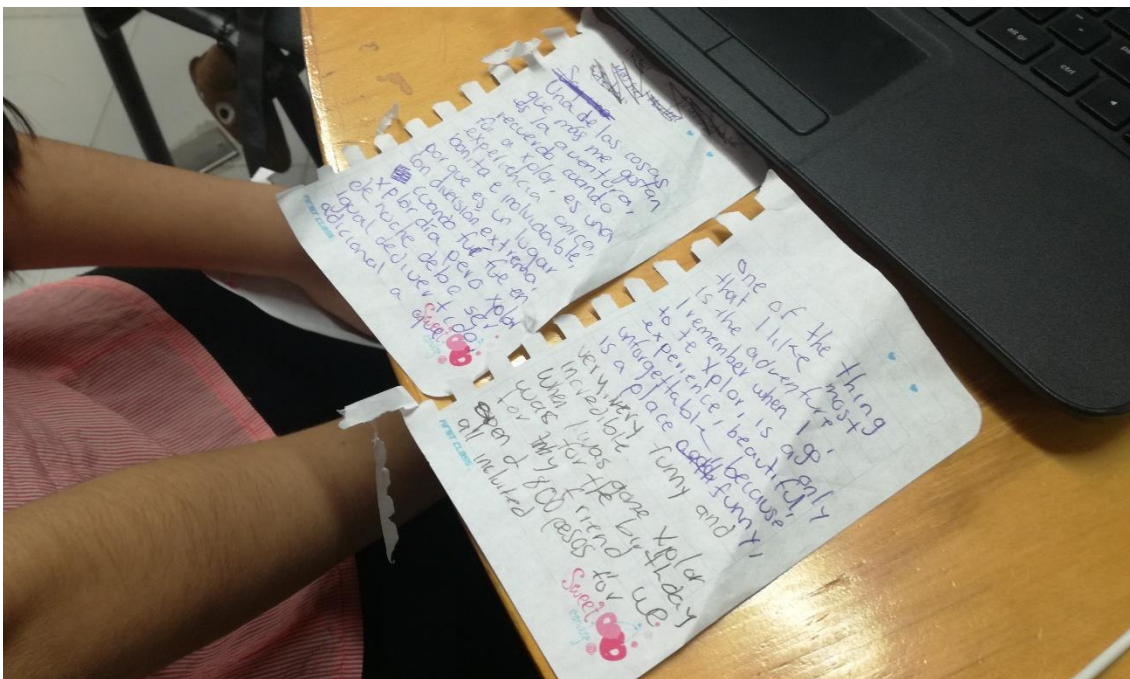 Una de las cosas
que más me gustan
es la aventura,
recuerdo cuando
fui a xplor, es una
experiencia única
bonita e inolvidable,
por que es un lugar
con diversion extrema,
cuando fui fue en
xplor dia pero xplor
de noche debe ser
igual de divertido
adicional a que
FIRST CLASS
Sweet
one of the thing
that I like most
is the adventure
I remember when I go,
to te xplor, is a only
experience, beautiful,
unforgettable because,
is a place funny,
very very funny and
incredible
When I was gone xplor
was for the birthday
for my friend we
spend 800 pesos for
all included
FIRST CLASS
Sweet
alt gr
ctrl